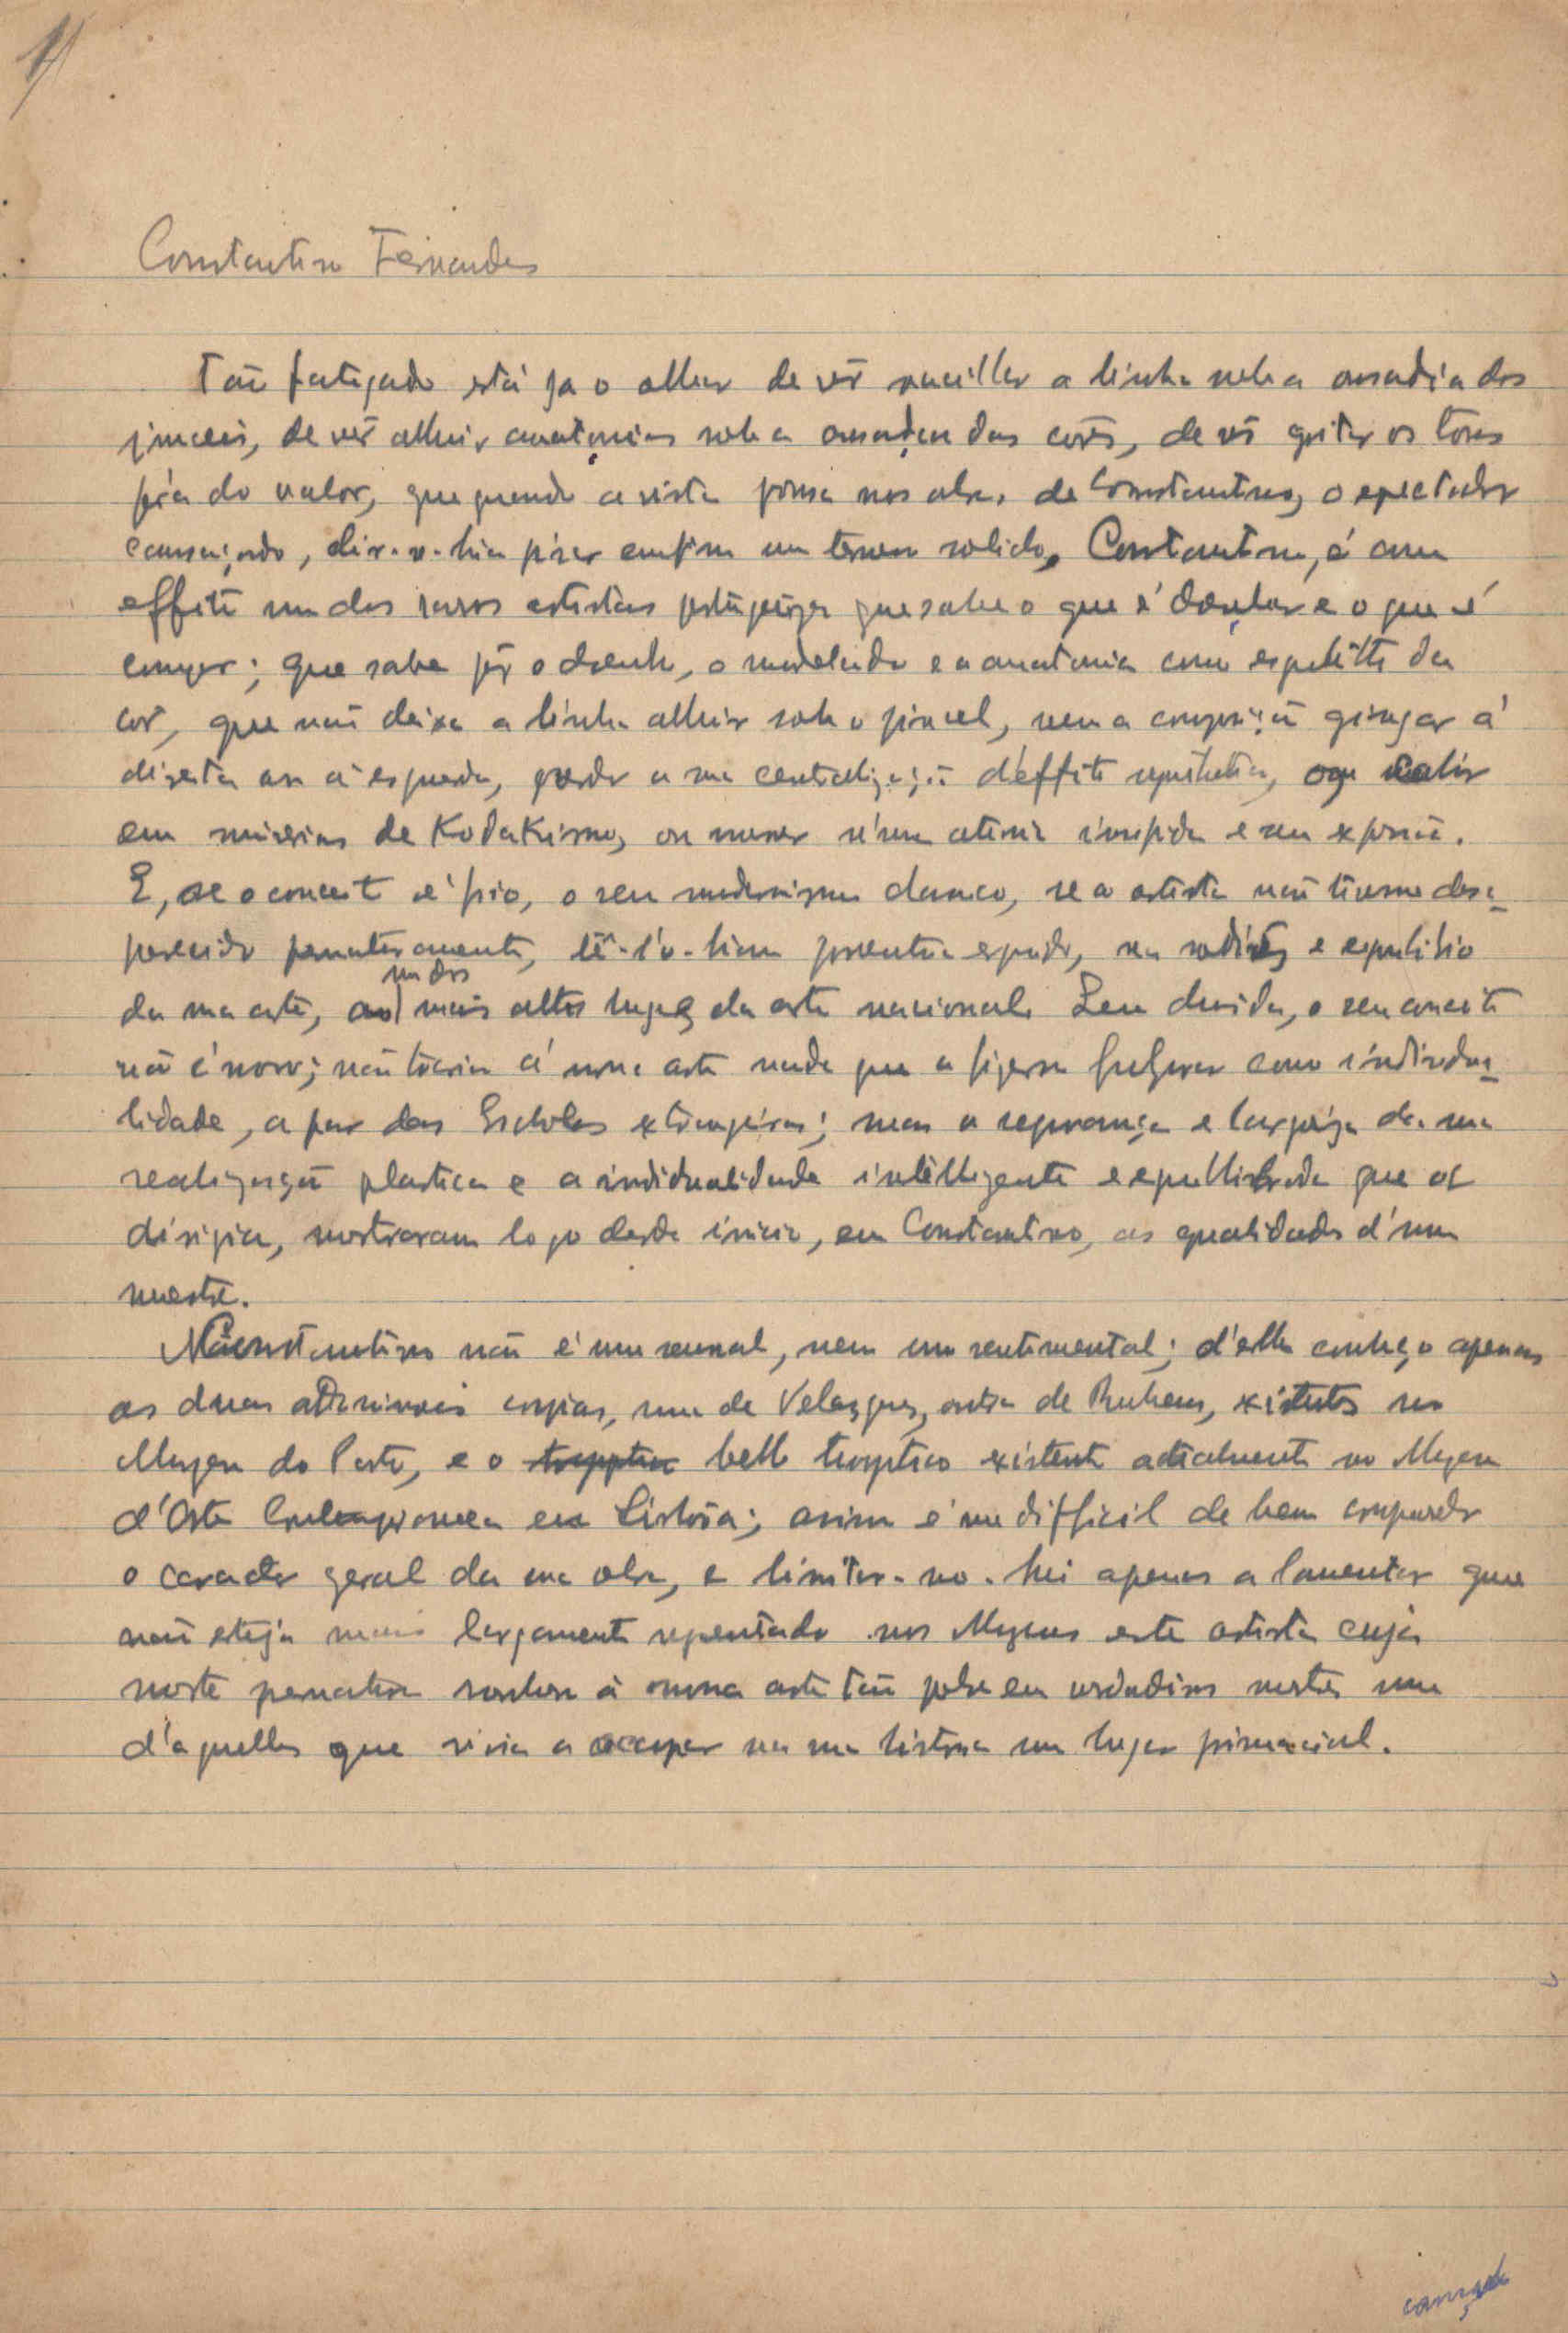 Constantino Fernandes
Tão fatigado está ja o olhar de vêr vacillar a linha sob a ousadia dos
pinceis, de vêr alluir anatomias sob a ousadia das côres, de vêr gritar os tons
fóra do valor, que quando a vista pousa nas obras de Constantino, o espectador
cansado, dir-se-hia pisar emfim um terreno solido. Constantino, é com
effeito um dos raros artistas portuguezes que sabe o que é desenhar e o que é
compor; que sabe pôr o desenho, o modelado e a anatomia como esqueletto da
côr, que não deixa a linha alluir sob o pincel, nem a composição gingar á
direita ou á esquerda, perder a sua centralização d'effeito synthetico, ou cahir
em miserias de Kodakismo, ou morrer n'uma atonia insipida e sem expressão.
E, se o conceito é frio, o seu modernismo classico, se o artista não tivesse desa-
parecido prematuramente, tê-l'o-hiam porventura erguido, na solidez e equilibrio
da sua arte, a um dos mais altos lugares da arte nacional. Sem duvida, o seu conceito
não é novo; não trazia á nossa arte nada que a fizesse fulgurar como individua-
lidade, a par das Escholas extrangeiras; mas a segurança e largueza da sua
realização plastica e a individualidade intelligente e equilibrada que a
dirigia, mostraram logo desde inicio, em Constantino, as qualidades d'um
mestre.
Constantino não é um sensual, nem um sentimental; d'elle conheço apenas
as duas copias, uma de Velazquez, outra de Rubens, existentes no
Muzeu do Porto, e o bello tryptico existente actualmente no Muzeu
d'Arte Contemporanea em Lisbôa; assim é-me difficil de bem comprender
o caracter geral da sua obra, e limitar-me-hei apenas a lamentar que
não esteja mais largamente representado nos Muzeus este artista cuja
morte prematura roubou á nossa arte tão pobre em verdadeiros mestres um
d'aquelles que viria a occupar na sua historia um lugar primacial.